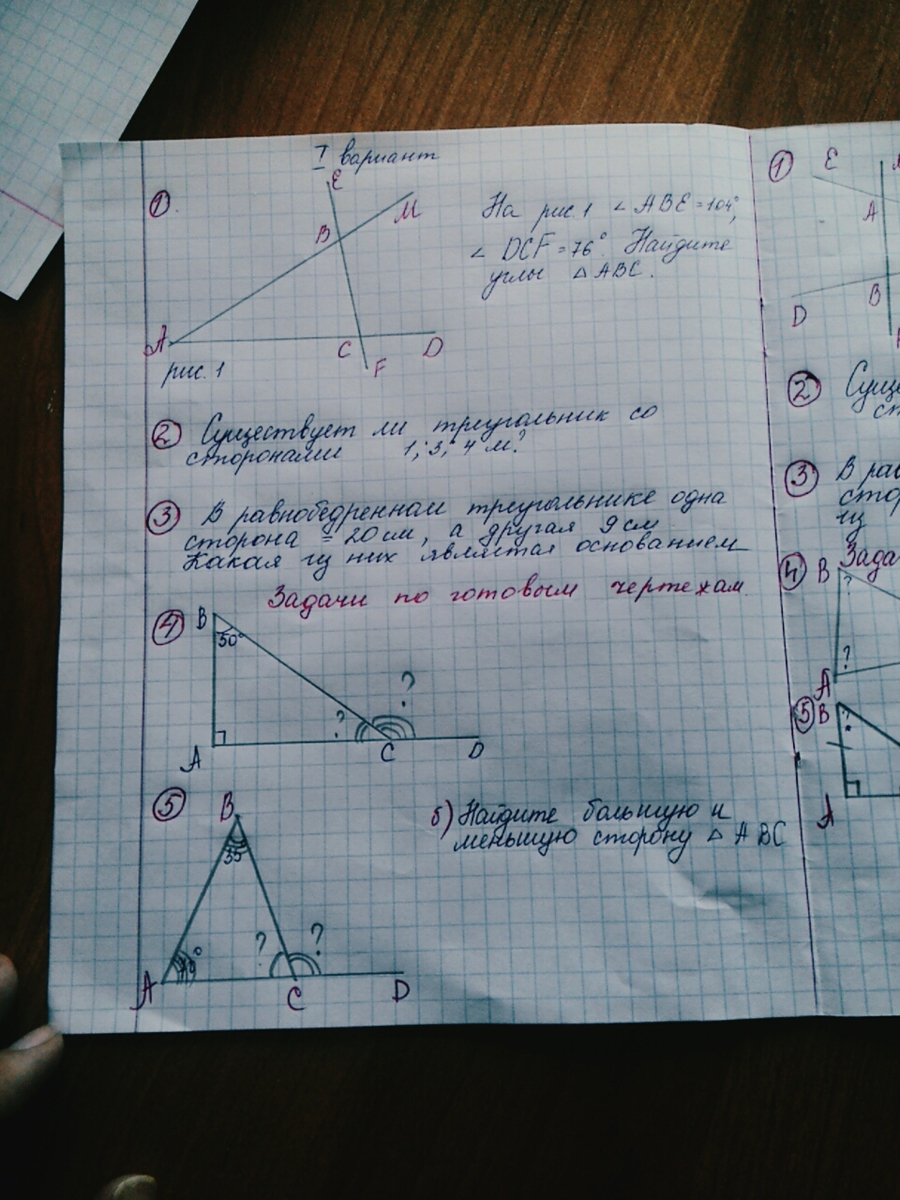 I вариант
①.
E
M
B
A
C
D
F
рис. 1
На рис. 1 ∠ ABE = 104°,
∠ DCF = 76°. Найдите
углы △ ABC.
② Существует ли треугольник со
сторонами 1; 3; 4 м?
③ В равнобедренном треугольнике одна
сторона = 20 см, а другая 9 см
Какая из них является основанием
Задачи по готовым чертежам.
④ B
50°
?
?
A
C
D
⑤ B
35°
?
?
A
C
D
б) Найдите большую и
меньшую сторону △ ABC
①
E
A
B
D
②
③ В
④ B
?
?
A
⑤ B
?
A